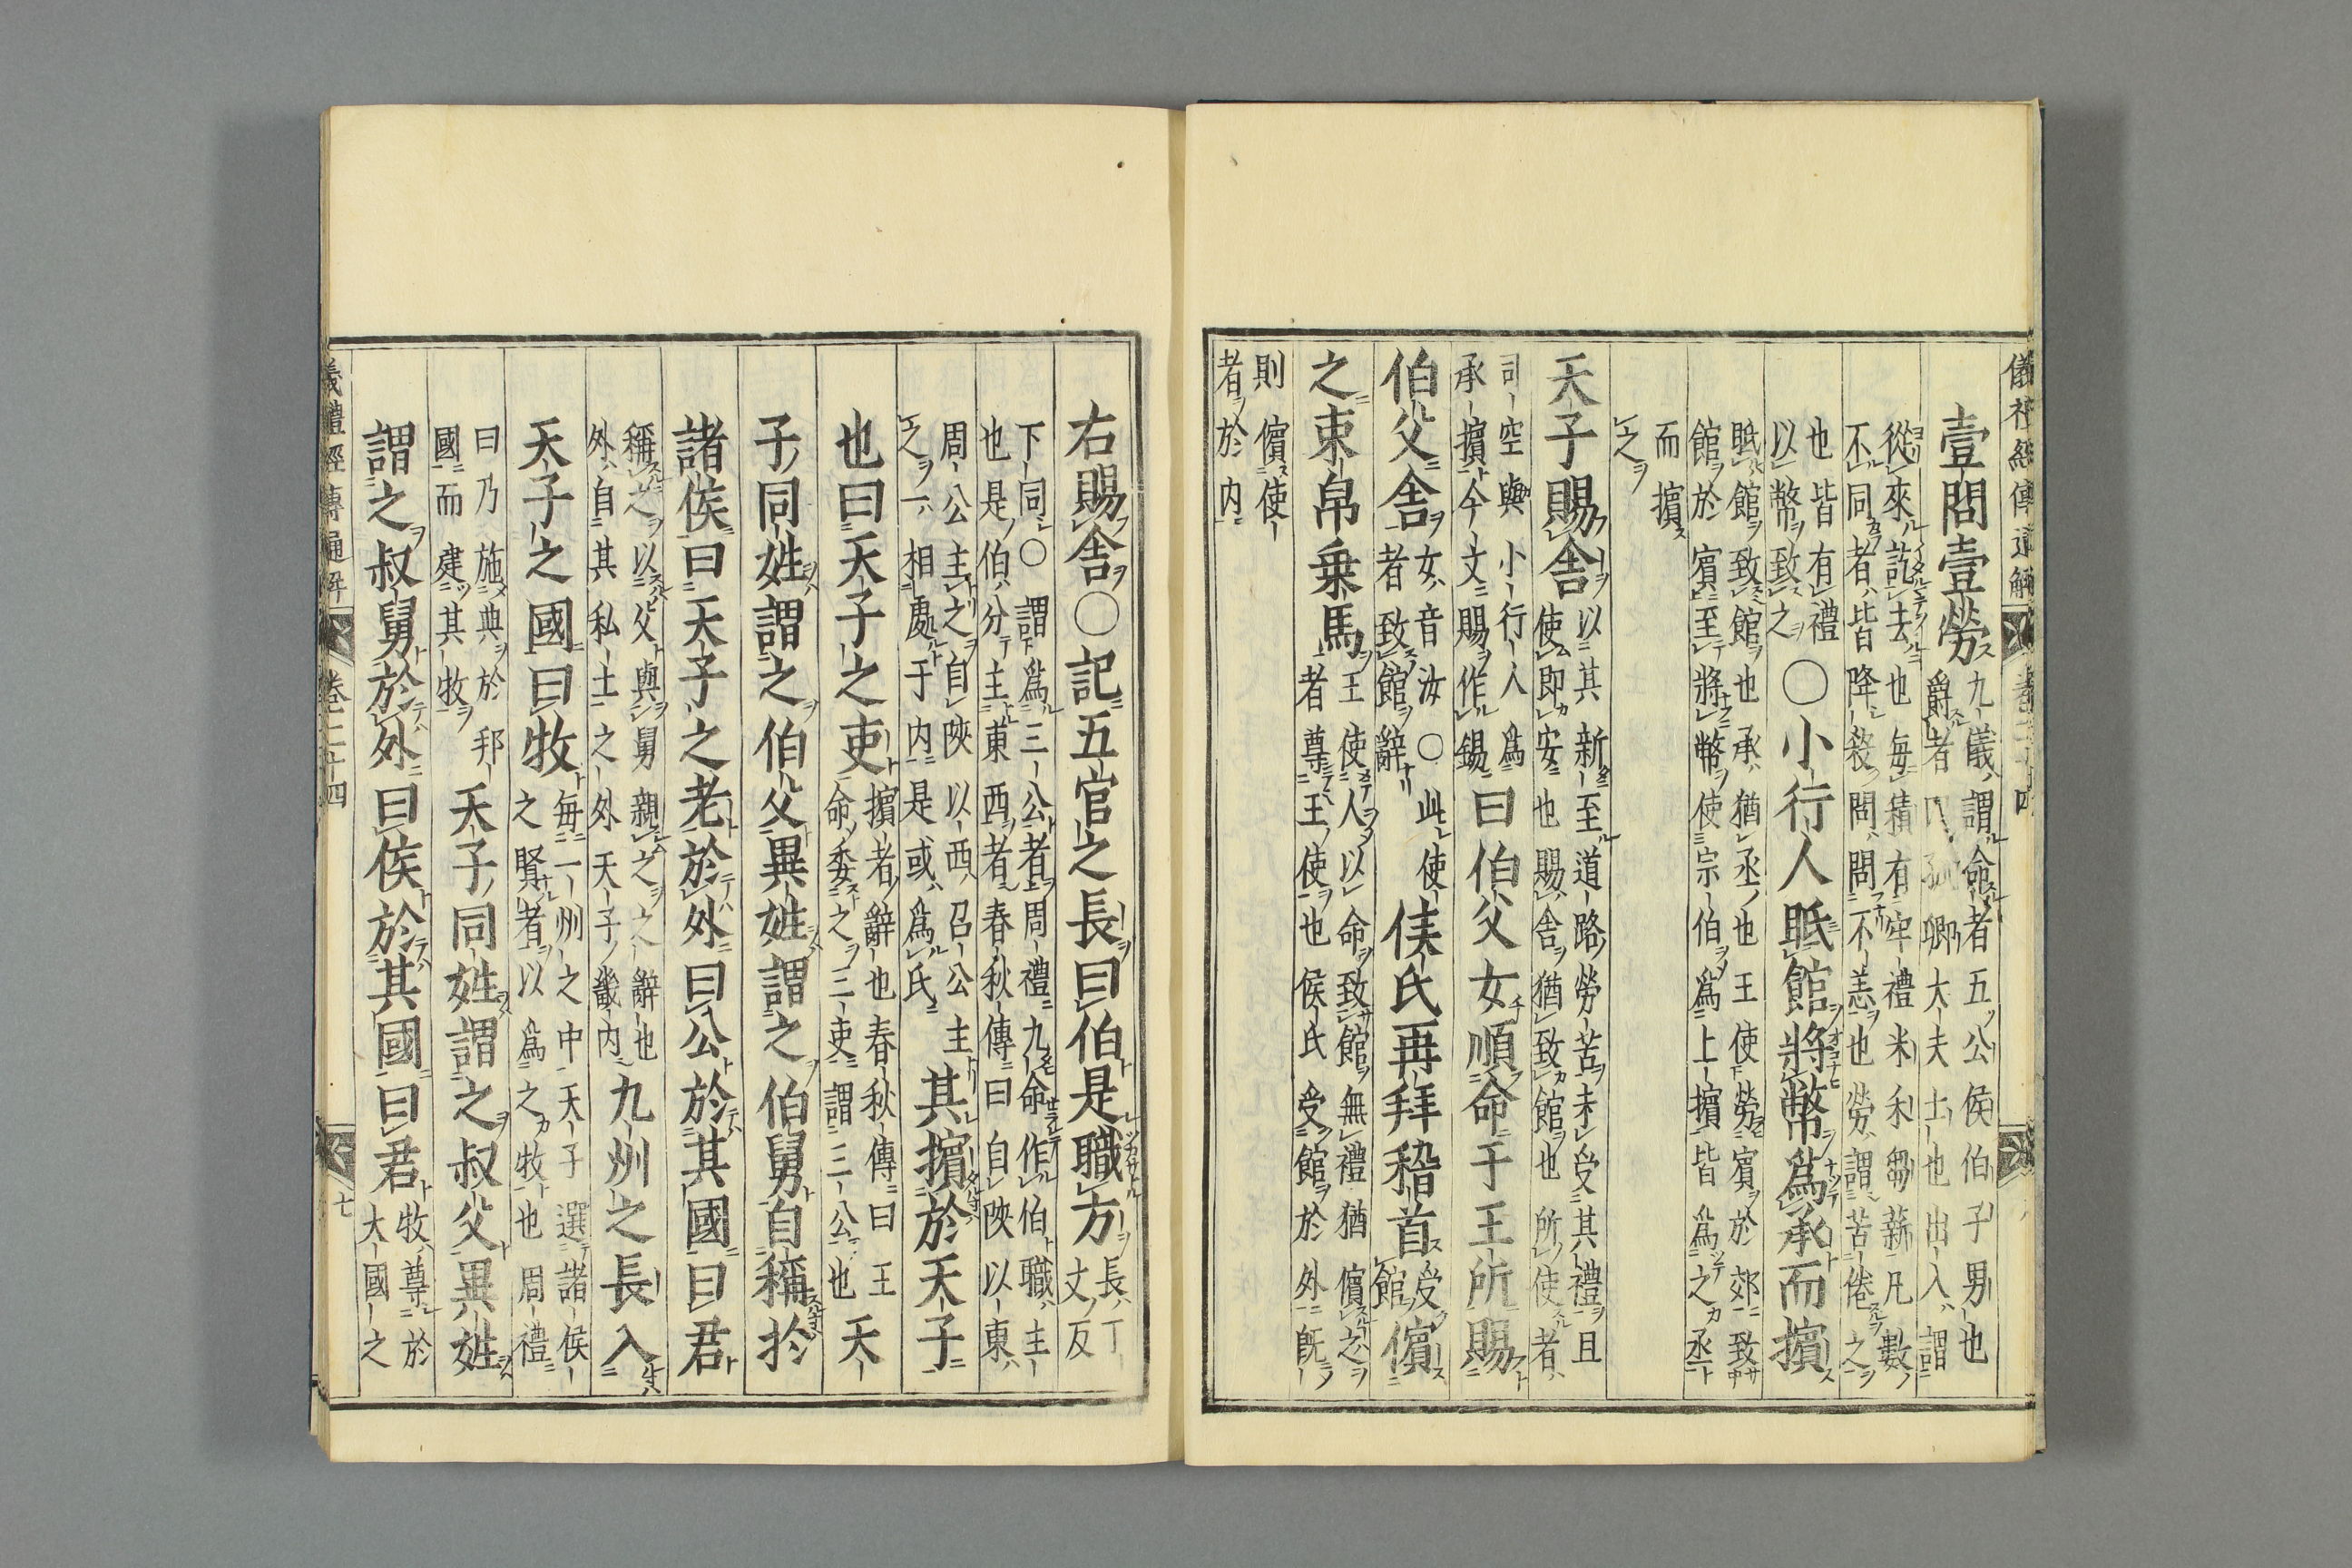 壹問壹勞
九儀謂命者五公侯伯子男也
爵者四孤卿大夫士也出入謂
從來訖去也每積有牢禮米禾芻薪凡數
不同者皆降殺問問不恙也勞謂苦倦之
也皆有禮
以幣致之
○小行人眡館將幣爲承而擯
眡館致館也承猶丞也王使勞賓於郊致
館於賓至將幣使宗伯爲上擯皆爲之丞
而擯
之
天子賜舍
以其新至道路勞苦未受其禮且
使即安也賜舍猶致館也所使者
司空與小行人爲
承擯今文賜作錫
曰伯父女順命于王所賜
伯父舍
女音汝○此使
者致館辭
侯氏再拜稽首
受
館
儐
之束帛乗馬
王使人以命致館無禮猶儐之
者尊王使也侯氏受館於外既
則儐使
者於内
儀禮經傳通解
右賜舍○記五官之長曰伯是職方
長丁
丈反
下同○謂爲三公者周禮九命作伯職主
也是伯分主東西者春秋傳曰自陝以東
周公主之自陝以西召公主
之一相處于内是或爲氏
其擯於天子
也曰天子之吏
擯者辭也春秋傳曰王
命委之三吏謂三公也
天
子同姓謂之伯父異姓謂之伯舅自稱扵
諸侯曰天子之老於外曰公於其國曰君
稱之以父與舅親之之辭也
外自其私土之外天子畿内
九州之長入
天子之國曰牧
每一州之中天子選諸侯
之賢者以爲之牧也周禮
曰乃施典於邦
國而建其牧
天子同姓謂之叔父異姓
謂之叔舅於外曰侯於其國曰君
牧尊於
大國之
儀禮經傳通解 卷二十四 七